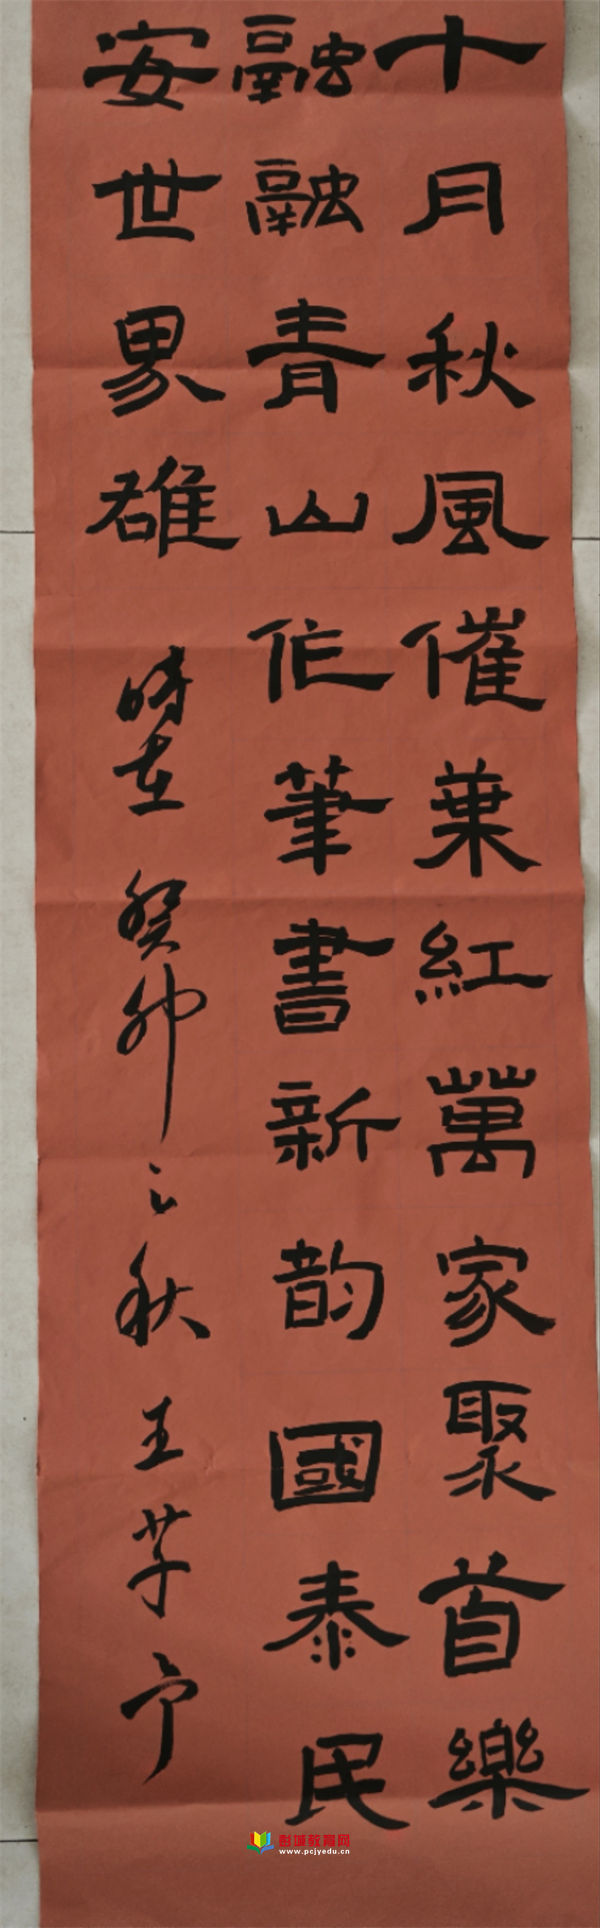 十月秋風催葉紅萬家聚首樂
融融青山作筆書新韵國泰民
安世界雄
時在癸卯之秋王芊予
彭城教育网
www.pcjyedu.cn